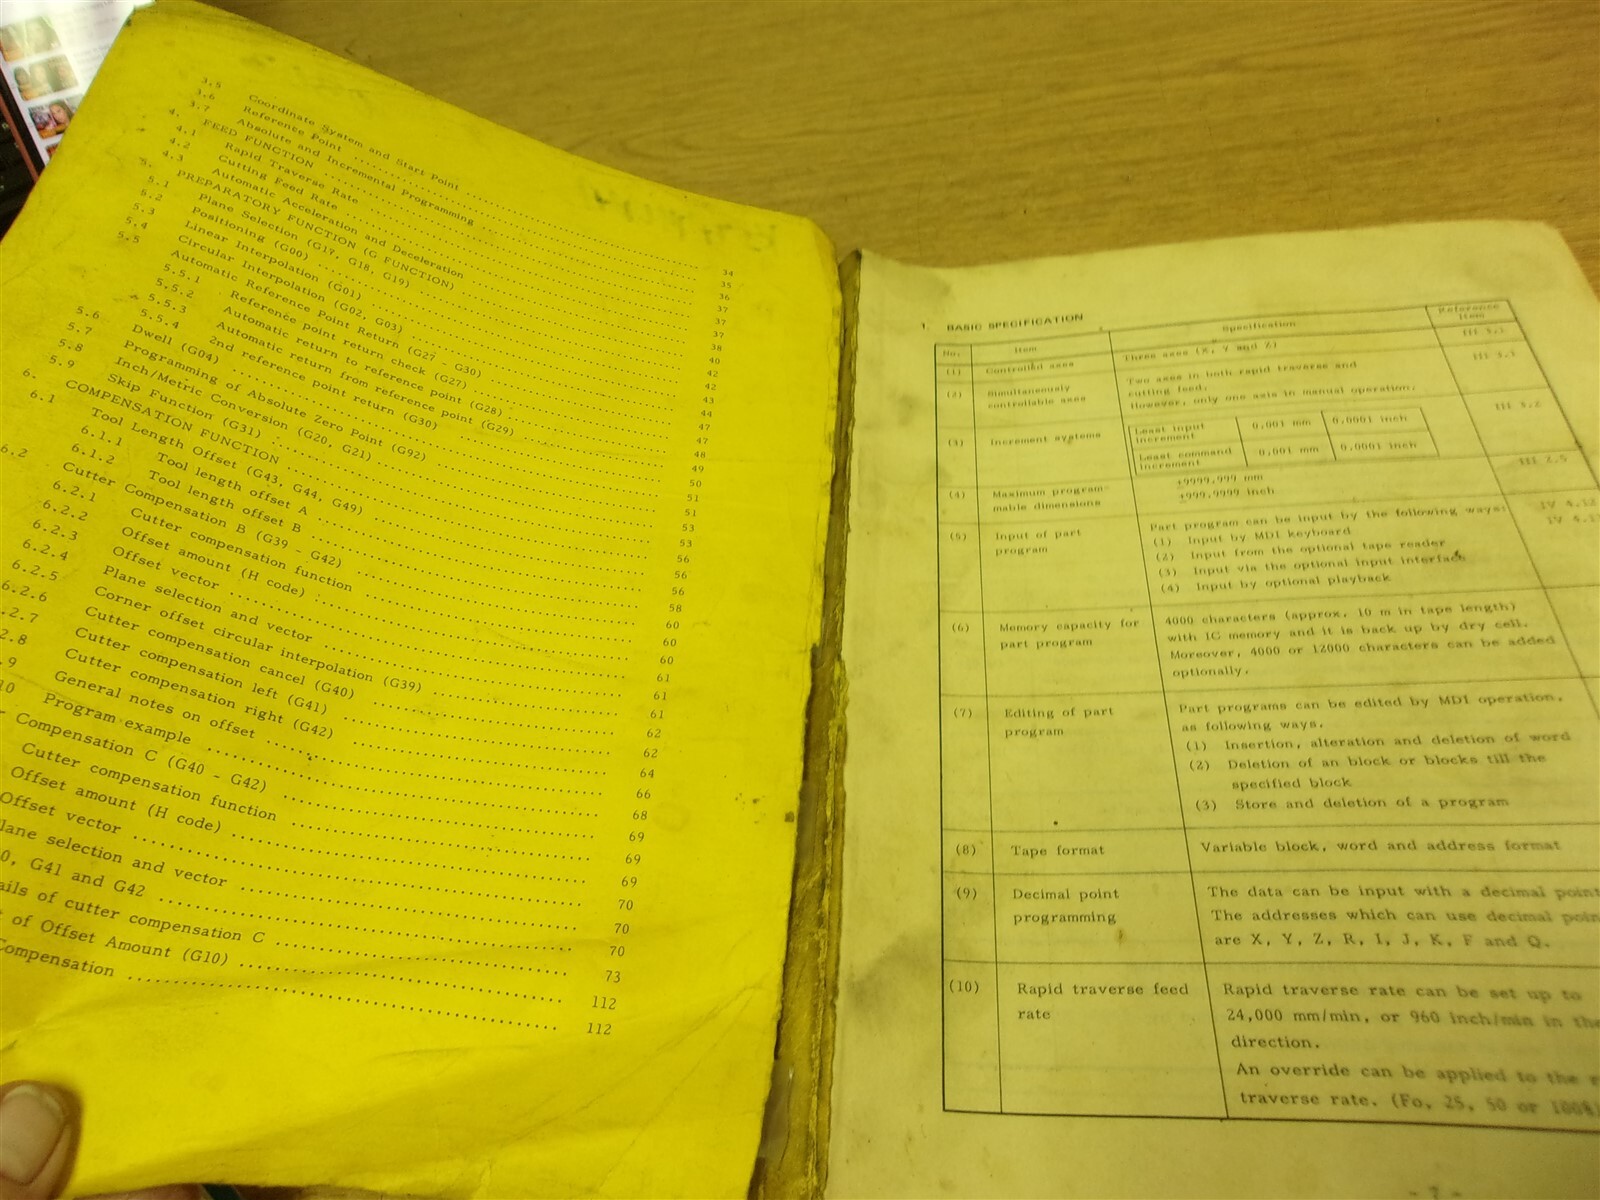 3.5 Coordinate System and Start Point 34
3.6 Reference Point 35
3.7 Absolute and Incremental Programming 36
4. FEED FUNCTION 37
4.1 Rapid Traverse Rate 37
4.2 Cutting Feed Rate 37
4.3 Automatic Acceleration and Deceleration
5. PREPARATORY FUNCTION (G FUNCTION)
5.1 Plane Selection (G17, G18, G19)
5.2 Positioning (G00)
5.3 Linear Interpolation (G01)
5.4 Circular Interpolation (G02, G03)
5.5 Automatic Reference Point Return (G27 - G30)
5.5.1 Reference point return check (G27)
5.5.2 Automatic return to reference point (G28)
5.5.3 Automatic return from reference point (G29)
5.5.4 2nd reference point return (G30)
5.6 Dwell (G04)
5.7 Programming of Absolute Zero Point (G92)
5.8 Inch/Metric Conversion (G20, G21)
5.9 Skip Function (G31)
6. COMPENSATION FUNCTION
6.1 Tool Length Offset (G43, G44, G49)
6.1.1 Tool length offset A
6.1.2 Tool length offset B
6.2 Cutter Compensation B (G39 - G42)
6.2.1 Cutter compensation function
6.2.2 Offset amount (H code)
6.2.3 Offset vector
6.2.4 Plane selection and vector
6.2.5 Corner offset circular interpolation (G39)
6.2.6 Cutter compensation cancel (G40)
.2.7 Cutter compensation left (G41)
2.8 Cutter compensation right (G42)
.9 General notes on offset
10 Program example
Compensation C (G40 - G42)
Cutter compensation function
Offset amount (H code) 69
Offset vector 69
lane selection and vector 70
0, G41 and G42 70
ails of cutter compensation C 73
t of Offset Amount (G10) 112
Compensation 112
1. BASIC SPECIFICATION
No. Item Specification Reference item
(1) Controlled axes Three axes (X, Y and Z) III 3.1
(2) Simultaneously controllable axes Two axes in both rapid traverse and III 3.1
cutting feed.
However, only one axis in manual operation.
(3) Increment systems Least input increment 0.001 mm 0.0001 inch III 3.2
Least command increment 0.001 mm 0.0001 inch
(4) Maximum program- ±9999.999 mm III 2.5
mable dimensions ±999.9999 inch
(5) Input of part Part program can be input by the following ways:
program (1) Input by MDI keyboard
(2) Input from the optional tape reader
(3) Input via the optional input interface
(4) Input by optional playback
(6) Memory capacity for 4000 characters (approx. 10 m in tape length)
part program with IC memory and it is back up by dry cell.
Moreover, 4000 or 12000 characters can be added
optionally.
(7) Editing of part Part programs can be edited by MDI operation,
program as following ways.
(1) Insertion, alteration and deletion of word
(2) Deletion of an block or blocks till the
specified block
(3) Store and deletion of a program
(8) Tape format Variable block, word and address format
(9) Decimal point The data can be input with a decimal point
programming The addresses which can use decimal poin
are X, Y, Z, R, I, J, K, F and Q.
(10) Rapid traverse feed Rapid traverse rate can be set up to
rate 24,000 mm/min, or 960 inch/min in the
direction.
An override can be applied to the r
traverse rate. (Fo, 25, 50 or 100%)